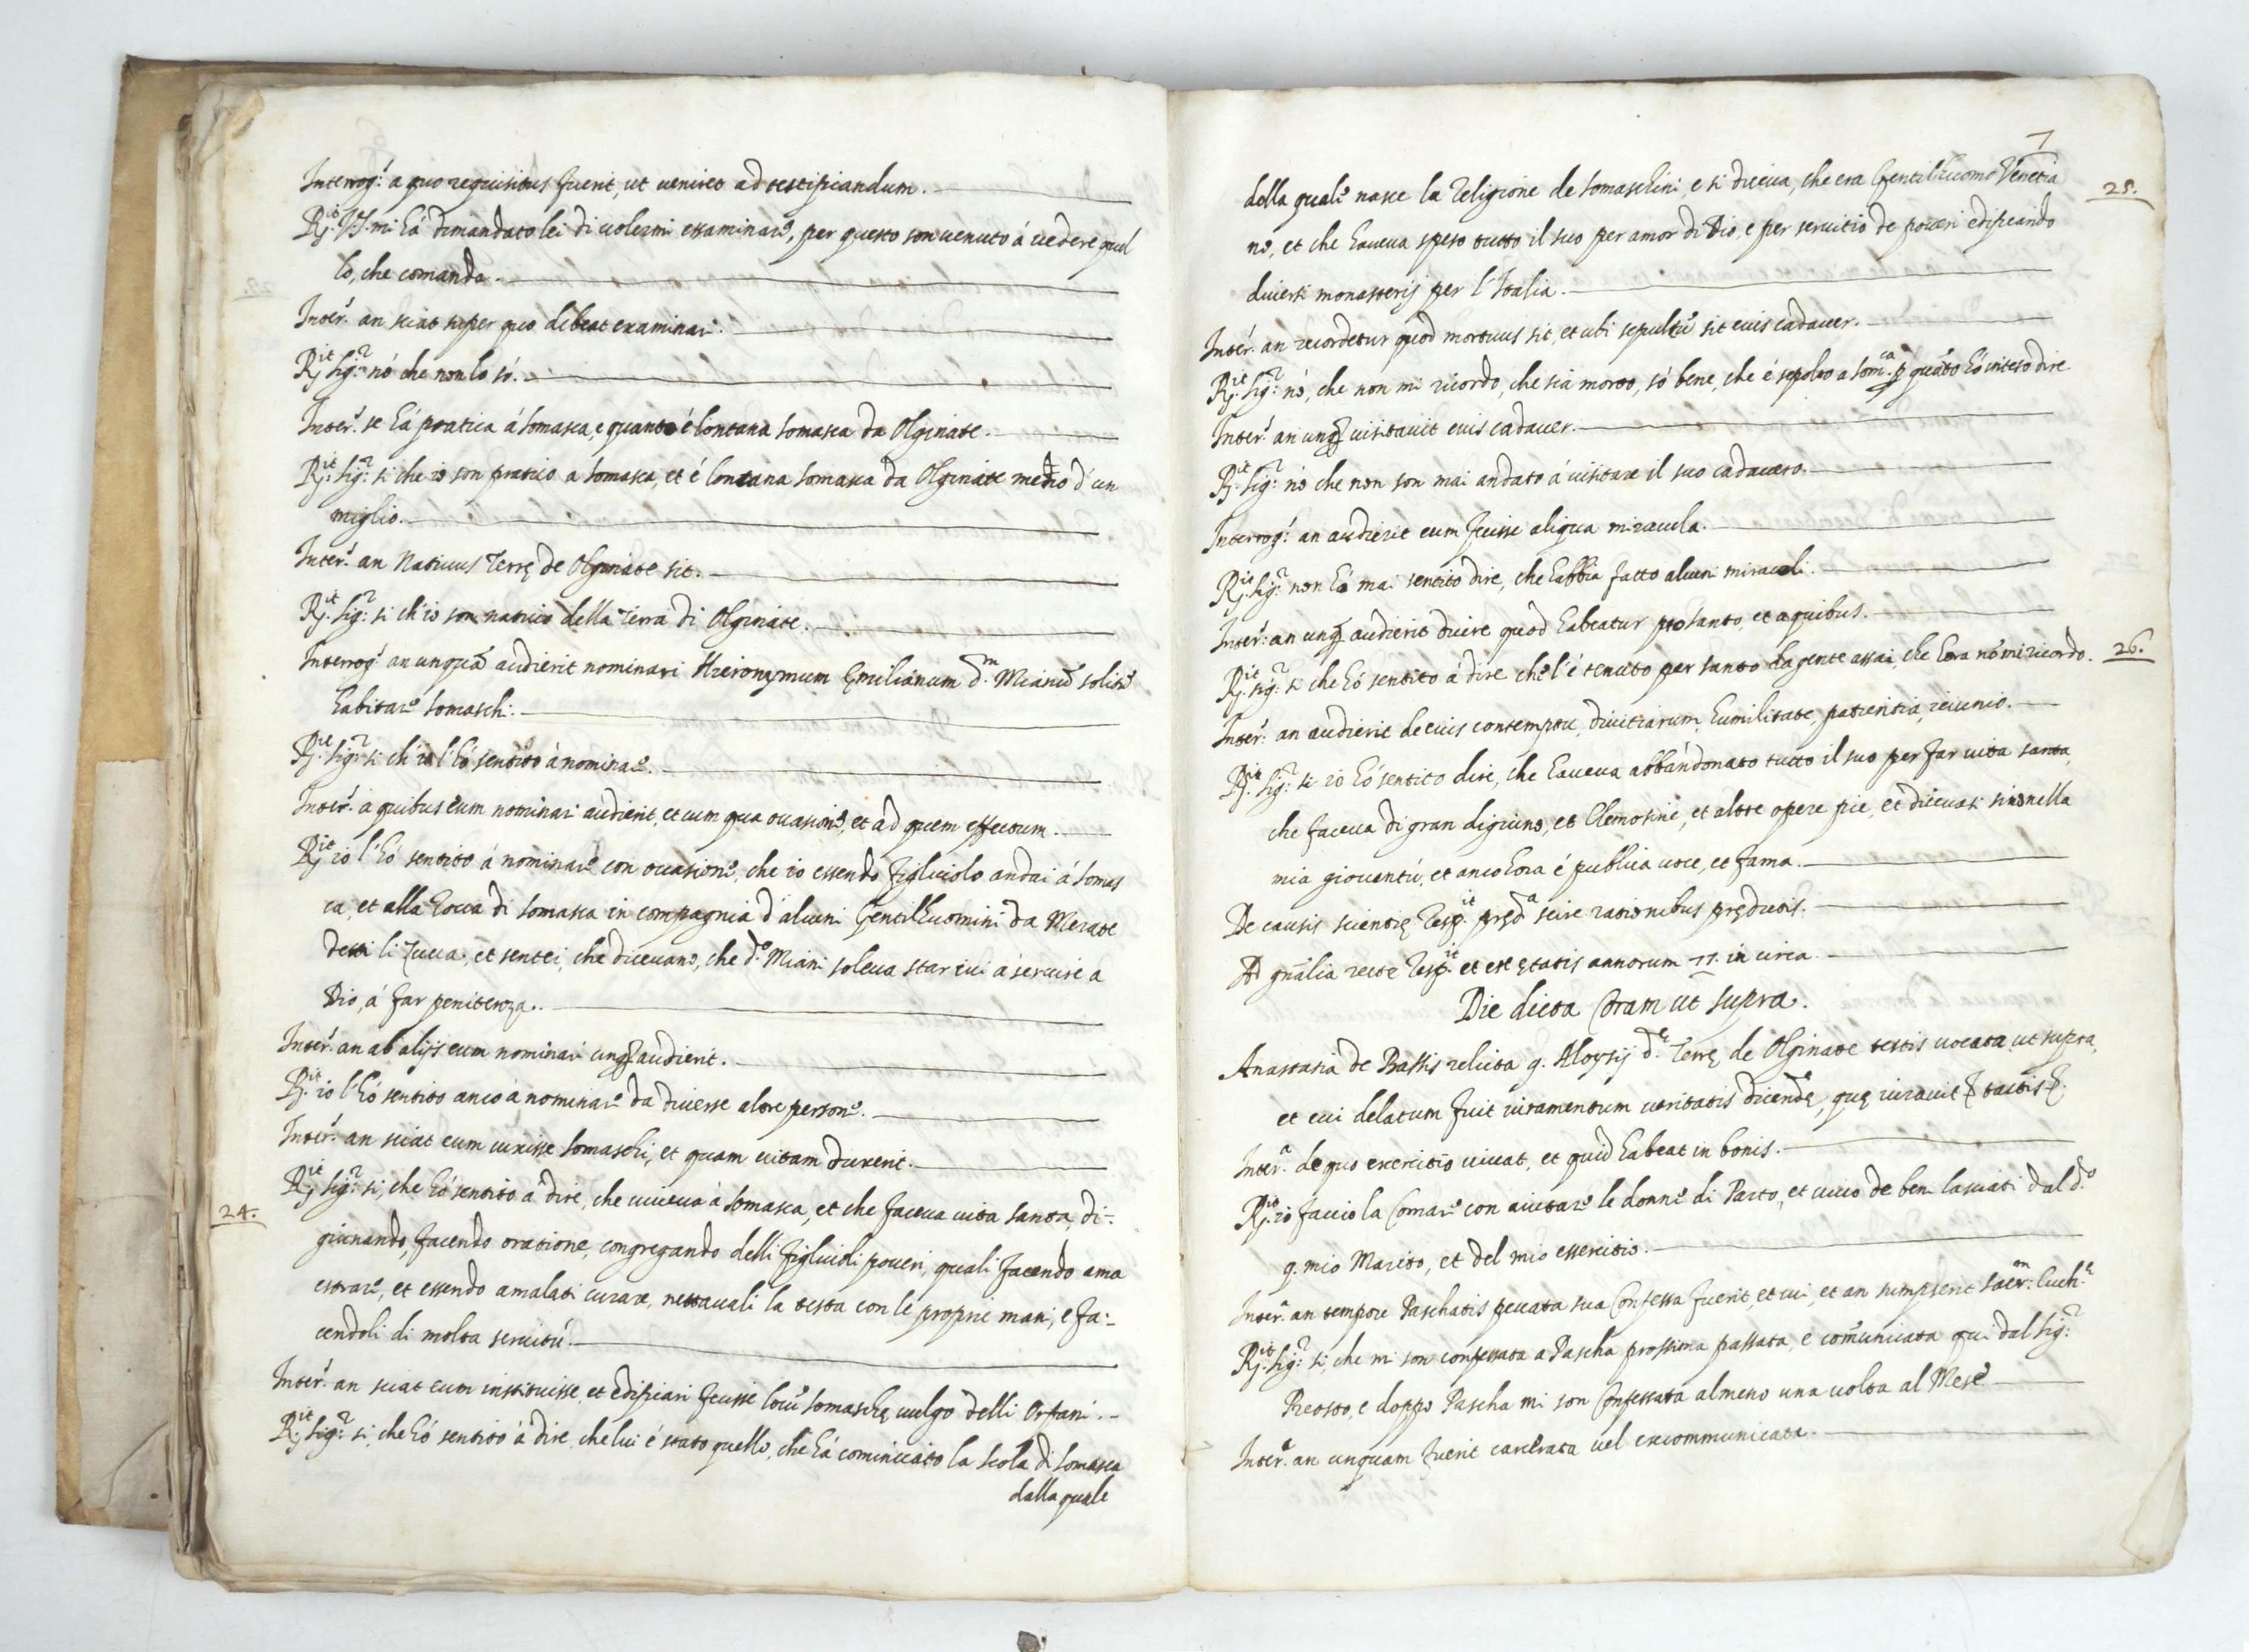 Interrog.s a quo requisitus fuerit, ut veniret ad testificandum.
R.it V.S. mi hà dimandato lei di volermi essaminare, per questo son venuto à vedere quel
lo, che comanda.
Inter.s an sciat super quo debeat examinari.
R.it Sig.r nò che non lo sò.
Inter.s se hà pratica à Somasca, e quanto é lontana Somasca da Olginate.
R.it Sig.r si che io son pratico a Somasca, et é lontana Somasca da Olginate mezo d'un
miglio.
Inter.s an Nativus Terrę de Olginate sit.
R.it Sig.r si ch'io son nativo della Terra di Olginate.
Interrog.s an unquā audierit nominari Hieronymum Emilianum d.m Mianū solitū
habitare Somaschę.
R.it Sig.r si ch'io l'hò sentito à nominare.
Inter.s a quibus eum nominari audierit, et cum qua occasione, et ad quem effectum.
R.it io l'hò sentito á nominare con occasione, che io essendo figliuolo andai á Somas
ca, et alla Rocca di Somasca in compagnia d'alcuni Gentilhuomini da Merate
detti li Zucca, et sentei, che dicevano, che d.o Miani soleva star ivi á servire a
Dio, á far penitenza.
Inter.s an ab alijs eum nominari unq̃ audierit.
R.it io l'hò sentito anco à nominare da diverse altre persone.
Inter.s an sciat eum vixisse Somaschę, et quam vitam duxerit.
24.
R.it Sig.r si, che hò sentito a dire, che viveva à Somasca, et che faceva vita santa, di-
giunando, facendo oratione, congregando delli figliuoli poveri, quali facendo ama
estrare, et essendo amalati curare, nettavali la testa con le proprie mani, e fa-
cendoli di molta servitù.
Inter.s an sciat eum instituisse, et edificari fecisse locū Somaschę vulgo delli Orfani.
R.it Sig.r si, che hò sentito à dire, che lui é stato quello, che hà cominciato la scola di Somasca
dalla quale
7
25.
dalla quale nasce la Religione de Somaschini e si diceva, che era Gentil'huomo Venetia
no, et che haveva speso tutto il suo per amor di Dio, e per servitio de poveri edificando
diversi monasterij per l'Italia.
Inter.s an recordetur quod mortuus sit, et ubi sepultū sit eius cadaver.
R.it Sig.r nò, che non mi ricordo, che sia morto, sò bene, che é sepolto a Som.ca p quāto hò inteso dire.
Inter.s an unq̃ visitavit eius cadaver.
R.it Sig.r nò che non son mai andato á visitare il suo cadavero.
Interrog.s an audierit eum fecisse aliqua miracula.
R.it Sig.r non hò mai sentito dire, che habbia fatto alcuni miracoli.
Inter.s an unq̃ audierit dicere quod habeatur pro Santo, et a quibus.
26.
R.it Sig.r si che hò sentito á dire che l'é tenuto per santo da gente assai, che hora nō mi ricordo.
Inter.s an audierit de eius contemptu, divitiarum, humilitate, patientia, ieiunio.
R.it Sig.r si io hò sentito dire, che haveva abbandonato tutto il suo per far vita santa,
che faceva di gran digiuno, et Elemosine, et altre opere pie, et dicevasi sino nella
mia gioventù, et anco hora é publica voce, et fama.
De causis scientię Resp.it prędā scire rationibus prędictis.
Ad gñalia recte Resp.it et est ętatis annorum 77. in circa.
Die dicta Coram ut supra.
Anastasia de Bassis relicta q. Aloysij d.ę Terrę de Olginate testis vocata ut supra,
et cui delatum fuit iuramentum veritatis dicendę, quę iuravit tactis
Inter.a de quo exercitio vivat, et quid habeat in bonis.
R.it io faccio la Comare con aiutare le donne di Parto, et vivo de beni lasciati dal d.o
q. mio Marito, et del mio essercitio.
Inter.a an tempore Paschatis peccata sua Confessa fuerit, et cui, et an sumpserit Sacr.m Euch.ę
R.it Sig.r si, che mi son confessata a Pascha prossima passata, e comunicata qui dal Sig.r
Preosto, e doppo Pascha mi son Confessata almeno una volta al Mese
Inter.a an unquam fuerit carcerata vel excommunicata.